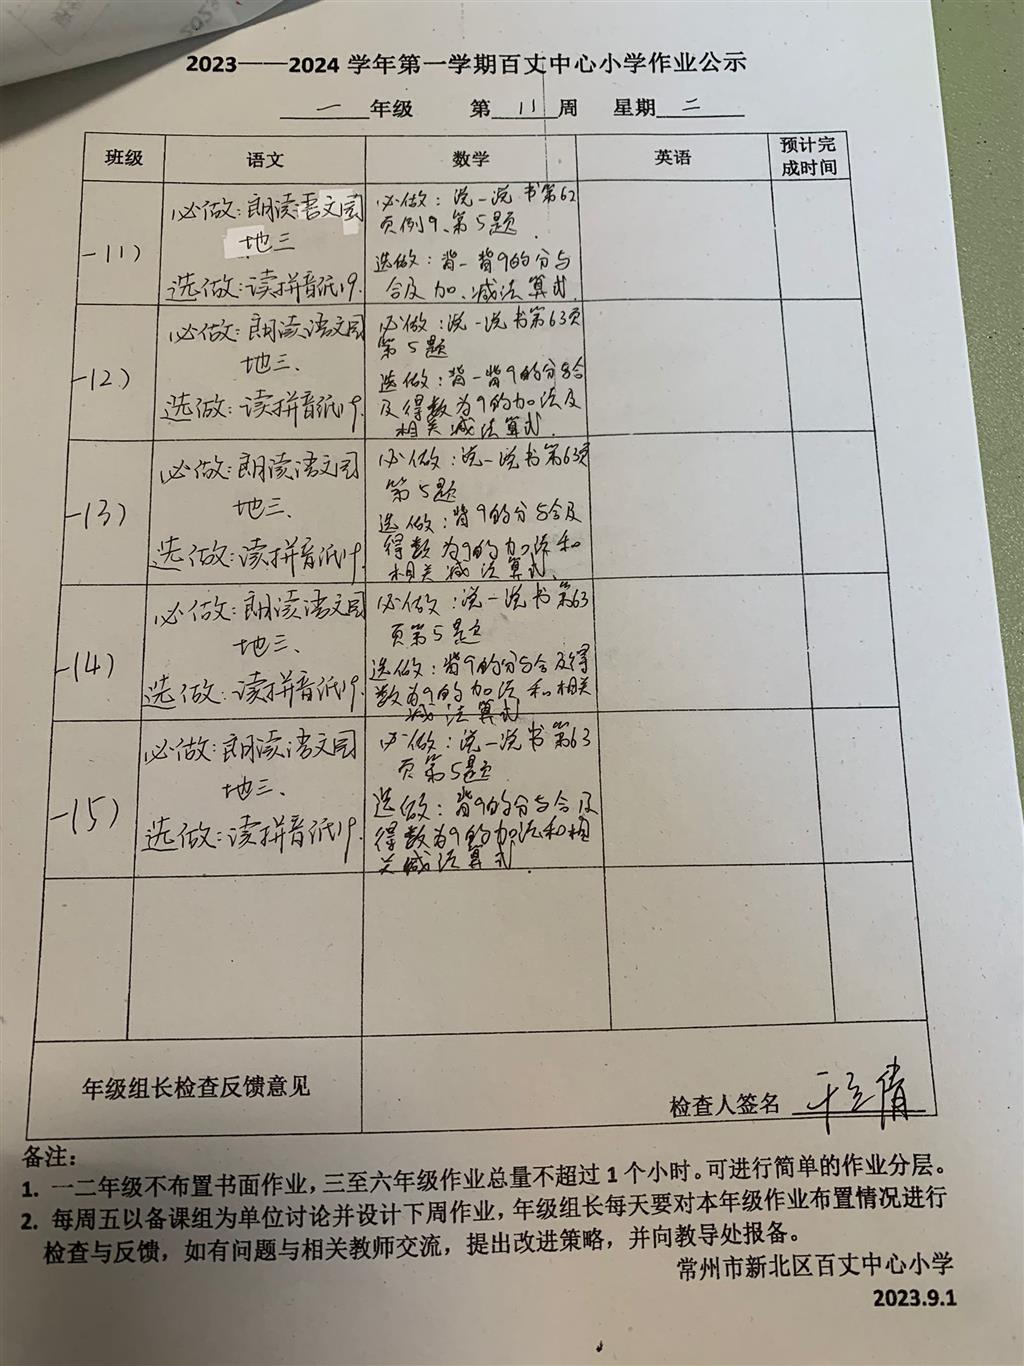 2023——2024 学年第一学期百丈中心小学作业公示
一 年级 第 11 周 星期 二
班级 语文 数学 英语 预计完
成时间
一(1)
必做:朗读语文园
地三
选做:读拼音纸19.
必做:说一说书第62
页例9、第5题.
选做:背一背9的分与
合及加、减法算式.
一(2)
必做:朗读语文园
地三、
选做:读拼音纸19.
必做:说一说书第63页
第5题
选做:背一背9的分与合
及得数为9的加法及
相关减法算式.
一(3)
必做:朗读语文园
地三、
选做:读拼音纸19.
必做:说一说书第63页
第5题
选做:背9的分与合及
得数为9的加法和
相关减法算式.
一(4)
必做:朗读语文园
地三、
选做:读拼音纸19.
必做:说一说书第63
页第5题
选做:背9的分与合及得
数为9的加法和相关
减法算式
一(5)
必做:朗读语文园
地三、
选做:读拼音纸19.
必做:说一说书第63
页第5题
选做:背9的分与合及
得数为9的加法和相
关减法算式.
年级组长检查反馈意见
检查人签名
备注:
1. 一二年级不布置书面作业,三至六年级作业总量不超过1个小时。可进行简单的作业分层。
2. 每周五以备课组为单位讨论并设计下周作业,年级组长每天要对本年级作业布置情况进行
检查与反馈,如有问题与相关教师交流,提出改进策略,并向教导处报备。
常州市新北区百丈中心小学
2023.9.1